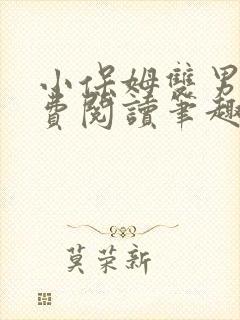 小保姆雙男
費閱讀筆趣
莫荣新